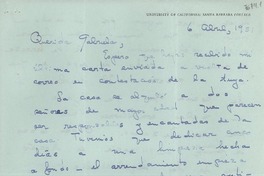 UNIVERSITY OF CALIFORNIA, SANTA BARBARA COLLEGE
6 Abril, 195
Querida Gabriela,
Espero recibido
carta enviada a de
correo en contestación de la tuya.
La casa se alquiló a dos
señores de mayor edad que parecen
ser responsables y encantadas de la
casa. Tuvimos que dedicar
días a una limpieza hecha
a fondo – el arrendamiento empieza